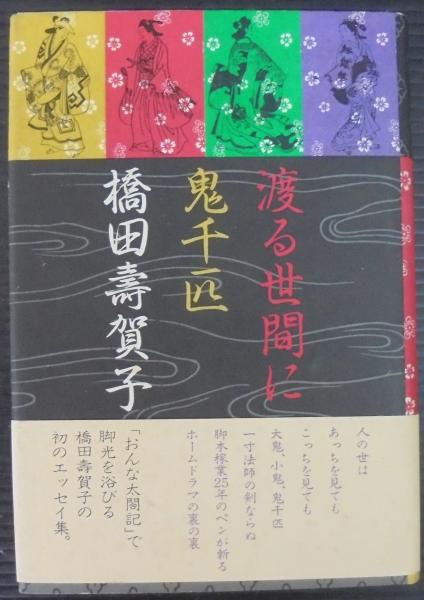 渡る世間に
鬼千匹
橋田壽賀子
人の世は
あっちを見ても
こっちを見ても
大鬼、小鬼、鬼千匹
一寸法師の剣ならぬ
脚本稼業25年のペンが斬る
ホームドラマの裏の裏
「おんな太閤記」で
脚光を浴びる
橋田壽賀子の
初のエッセイ集。